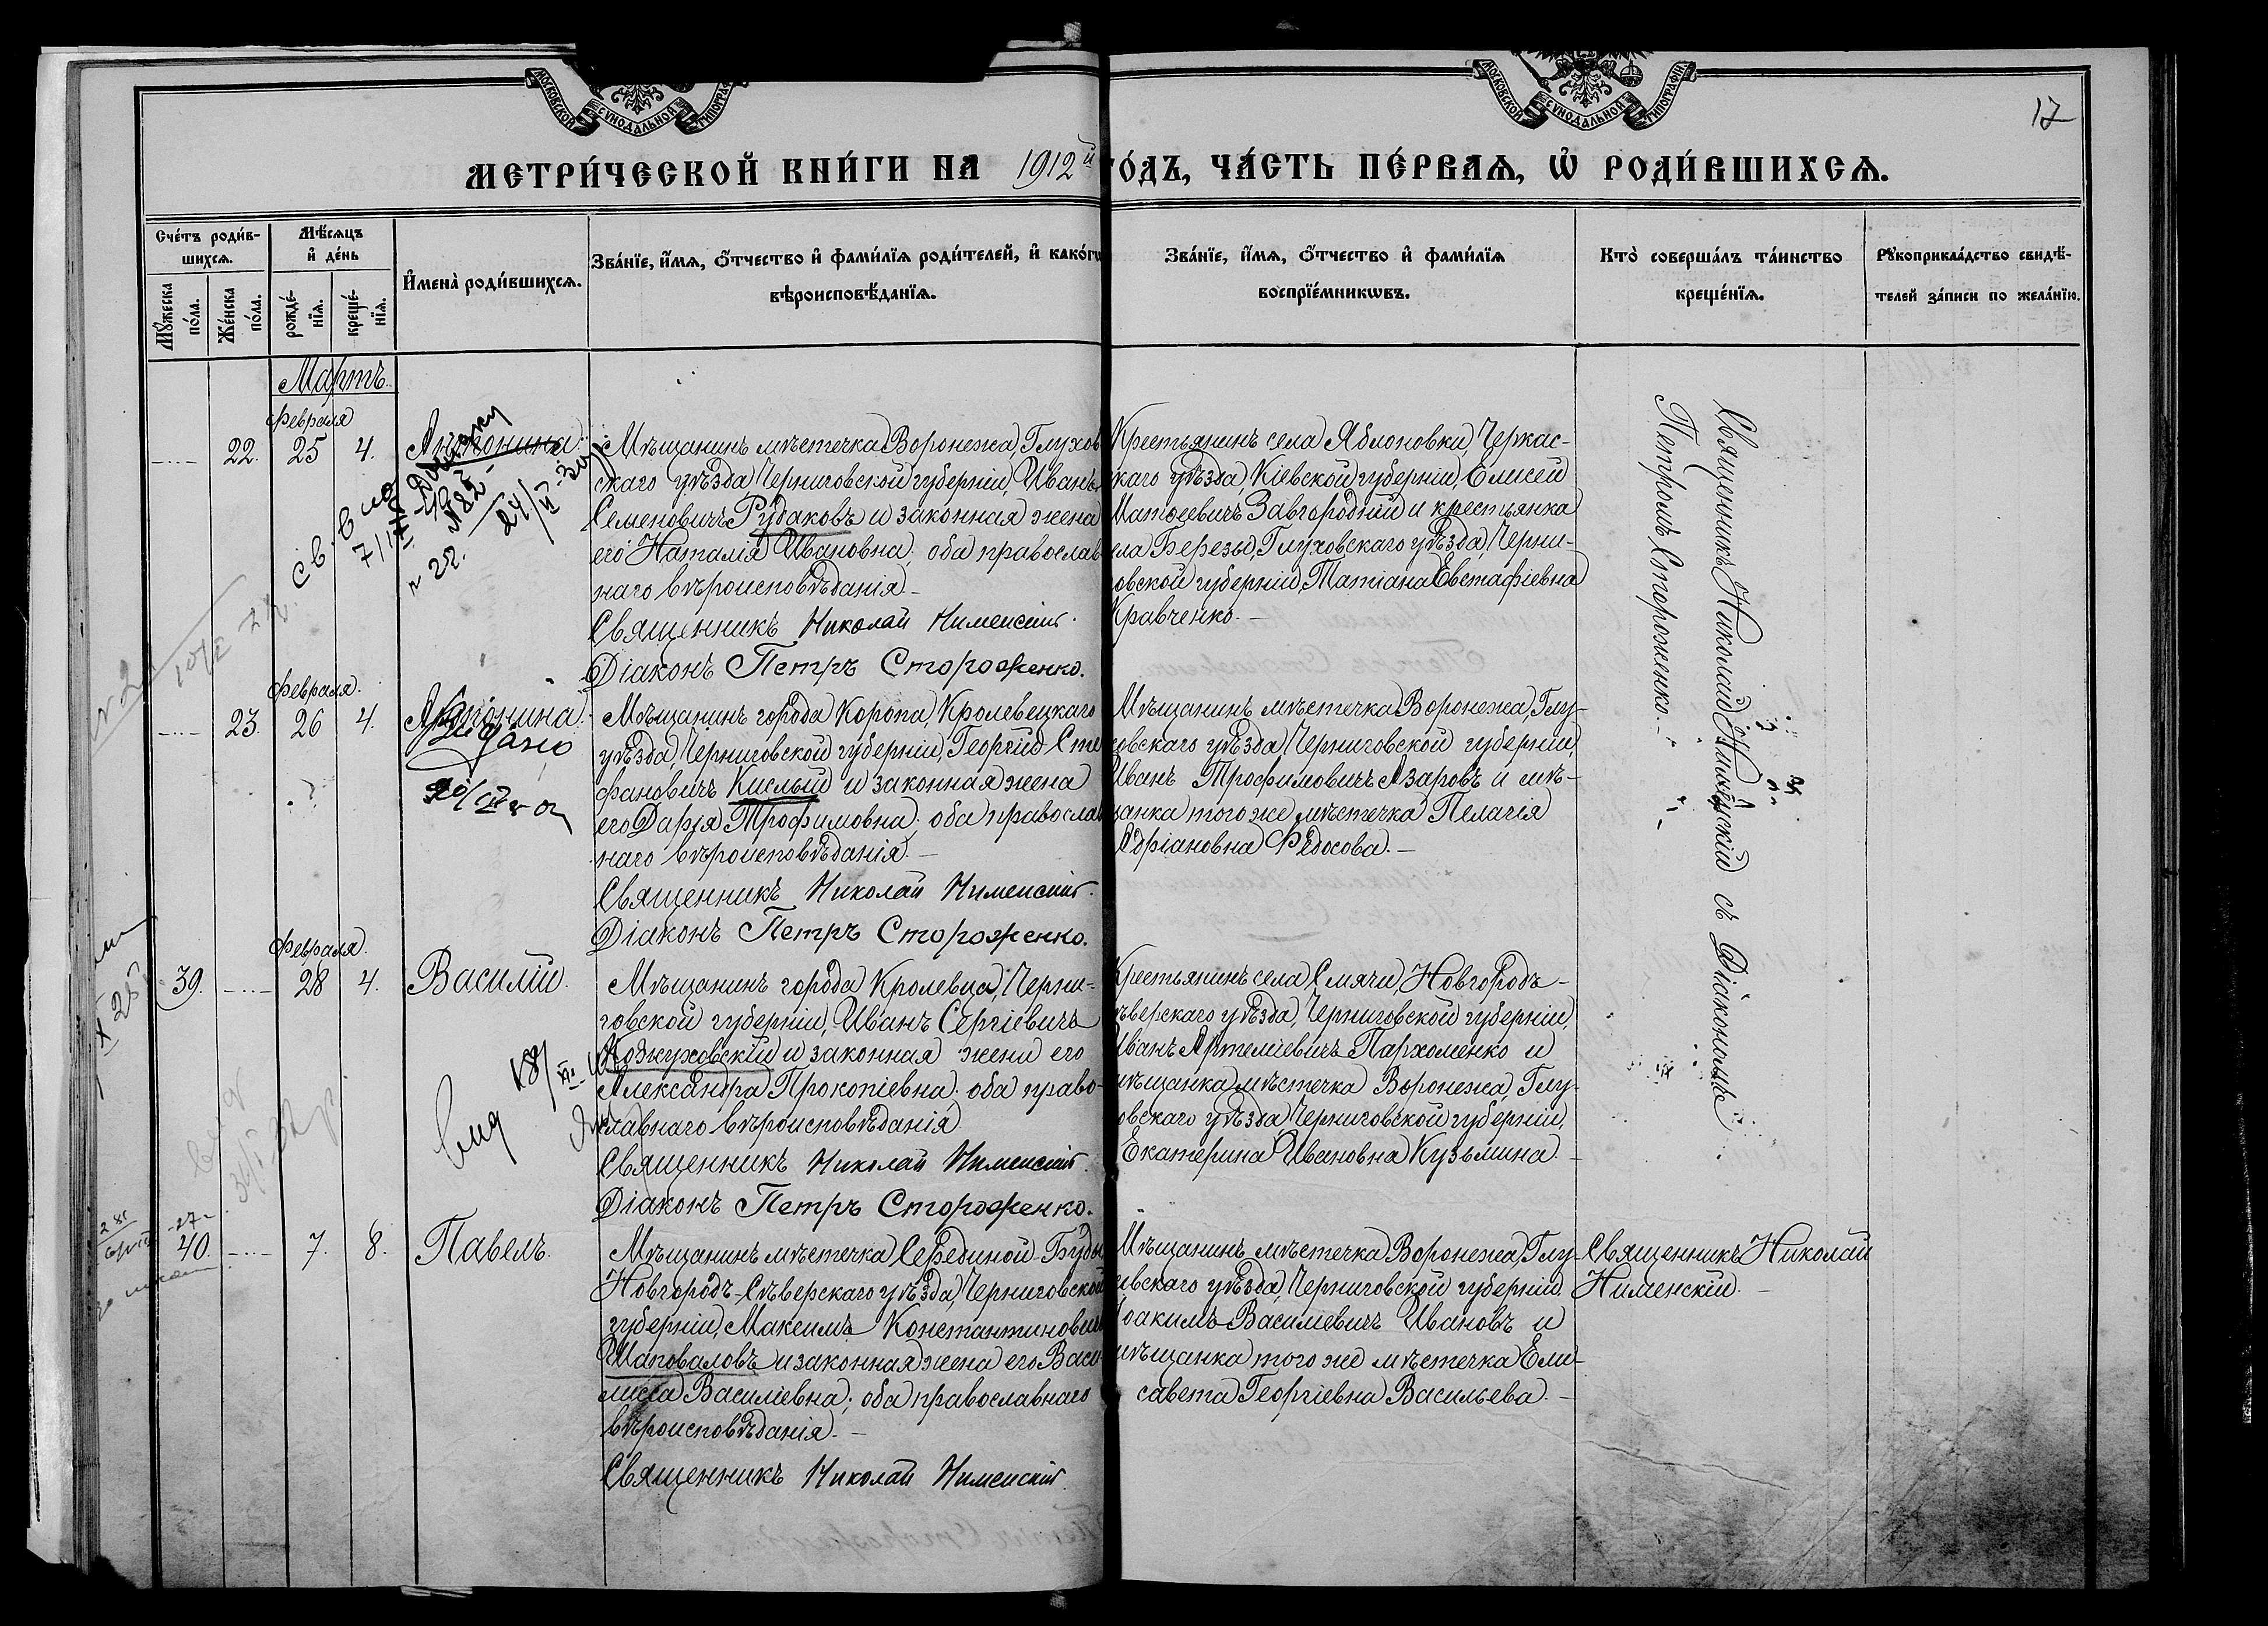 МОСКОВСКОЙ СѴНОДАЛЬНОЙ ТИПОГРАФІИ
МОСКОВСКОЙ СѴНОДАЛЬНОЙ ТИПОГРАФІИ
17
МЕТРИ́ЧЕСКОЙ КНИ́ГИ НА 1912й ГО́ДЪ, ЧА́СТЬ ПЕ́РВАѦ, Ѽ РОДИ́ВШИХСѦ.
Сче́тъ роди́в-
шихсѧ.
Мꙋ́жеска по́ла.
Же́нска по́ла.
Мѣ́сѧцъ
и҆ де́нь
рожде́-
нїѧ.
креще́-
нїѧ.
И҆мена̀ роди́вшихсѧ.
Зва́нїе, и҆́мѧ, ѻ҆́тчество и҆ фами́лїѧ роди́телей, и҆ како́гѡ
вѣроисповѣ́данїѧ.
Зва́нїе, и҆́мѧ, ѻ҆́тчество и҆ фами́лїѧ
воспрїе́мникѡвъ.
Кто̀ соверша́лъ та́инство
креще́нїѧ.
Рꙋкоприкла́дство свидѣ́-
телей за́писи по жела́нїю.
Мартъ.
Февраля
22. 25 4. Антонина.
Мѣщанинъ мѣстечка Воронежа, Глухов
скаго уѣзда, Черниговской губерніи, Иванъ
Семеновичъ Рудаковъ и законная жена
его Наталія Ивановна; оба православ
наго вѣроисповѣданія.
Священникъ Николай Нименскій.
Діаконъ Петръ Стороженко.
Крестьянинъ села Яблоновки, Черкас-
скаго уѣзда, Кіевской губерніи, Елисей
Матѳеевичъ Завгородній и крестьянка
села Березы, Глуховскаго уѣзда, Черни-
говской губерніи, Татіана Евстафіевна
Кравченко.
Священникъ Николай Нименскій съ Діакономъ
Петромъ Стороженко.
№ 82
Февраля.
23. 26 4. Антонина.
Мѣщанинъ города Коропа, Кролевецкаго
уѣзда, Черниговской губерніи, Георгій Сте
фановичъ Кислый и законная жена
его Дарія Трофимовна; оба православ
наго вѣроисповѣданія.
Священникъ Николай Нименскій.
Діаконъ Петръ Стороженко.
Мѣщанинъ мѣстечка Воронежа, Глу-
ховскаго уѣзда, Черниговской губерніи,
Иванъ Трофимовичъ Азаровъ и мѣ-
щанка того же мѣстечка Пелагія
Адріановна Ѳедосова.
Февраля.
39. 28 4. Василій.
Мѣщанинъ города Кролевца, Черни-
говской губерніи, Иванъ Сергіевичъ
Кожуховскій и законная жена его
Александра Прокопіевна; оба право-
славнаго вѣроисповѣданія
Священникъ Николай Нименскій.
Діаконъ Петръ Стороженко.
Крестьянинъ села Смячи, Новгородъ-
Сѣверскаго уѣзда, Черниговской губерніи,
Иванъ Артеміевичъ Пархоменко и
мѣщанка мѣстечка Воронежа, Глу-
ховскаго уѣзда, Черниговской губерніи,
Екатерина Ивановна Кузьмина.
40. 7. 8. Павелъ.
Мѣщанинъ мѣстечка Середины-Буды
Новгородъ-Сѣверскаго уѣзда, Черниговской
губерніи, Максимъ Константинович
Шаповаловъ и законная жена его Васи-
лисса Василіевна; оба православнаго
вѣроисповѣданія.
Священникъ Николай Нименскій.
Мѣщанинъ мѣстечка Воронежа, Глу-
ховскаго уѣзда, Черниговской губерніи
Іоакимъ Василіевичъ Ивановъ и
мѣщанка того же мѣстечка Ели-
савета Георгіевна Васильева.
Священникъ Николай
Нименскій.